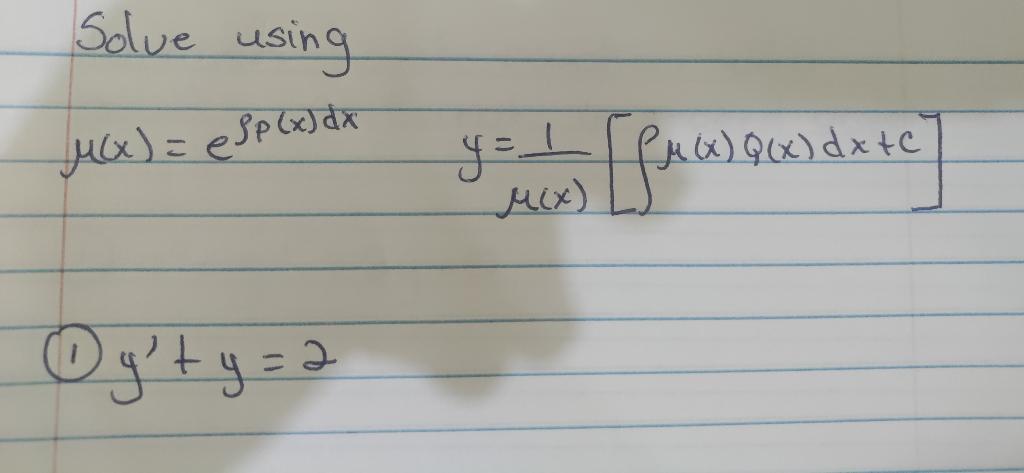 Solve using
μ(x) = e^∫p(x)dx y = 1/μ(x) [∫μ(x) Q(x) dx + C]
① y' + y = 2